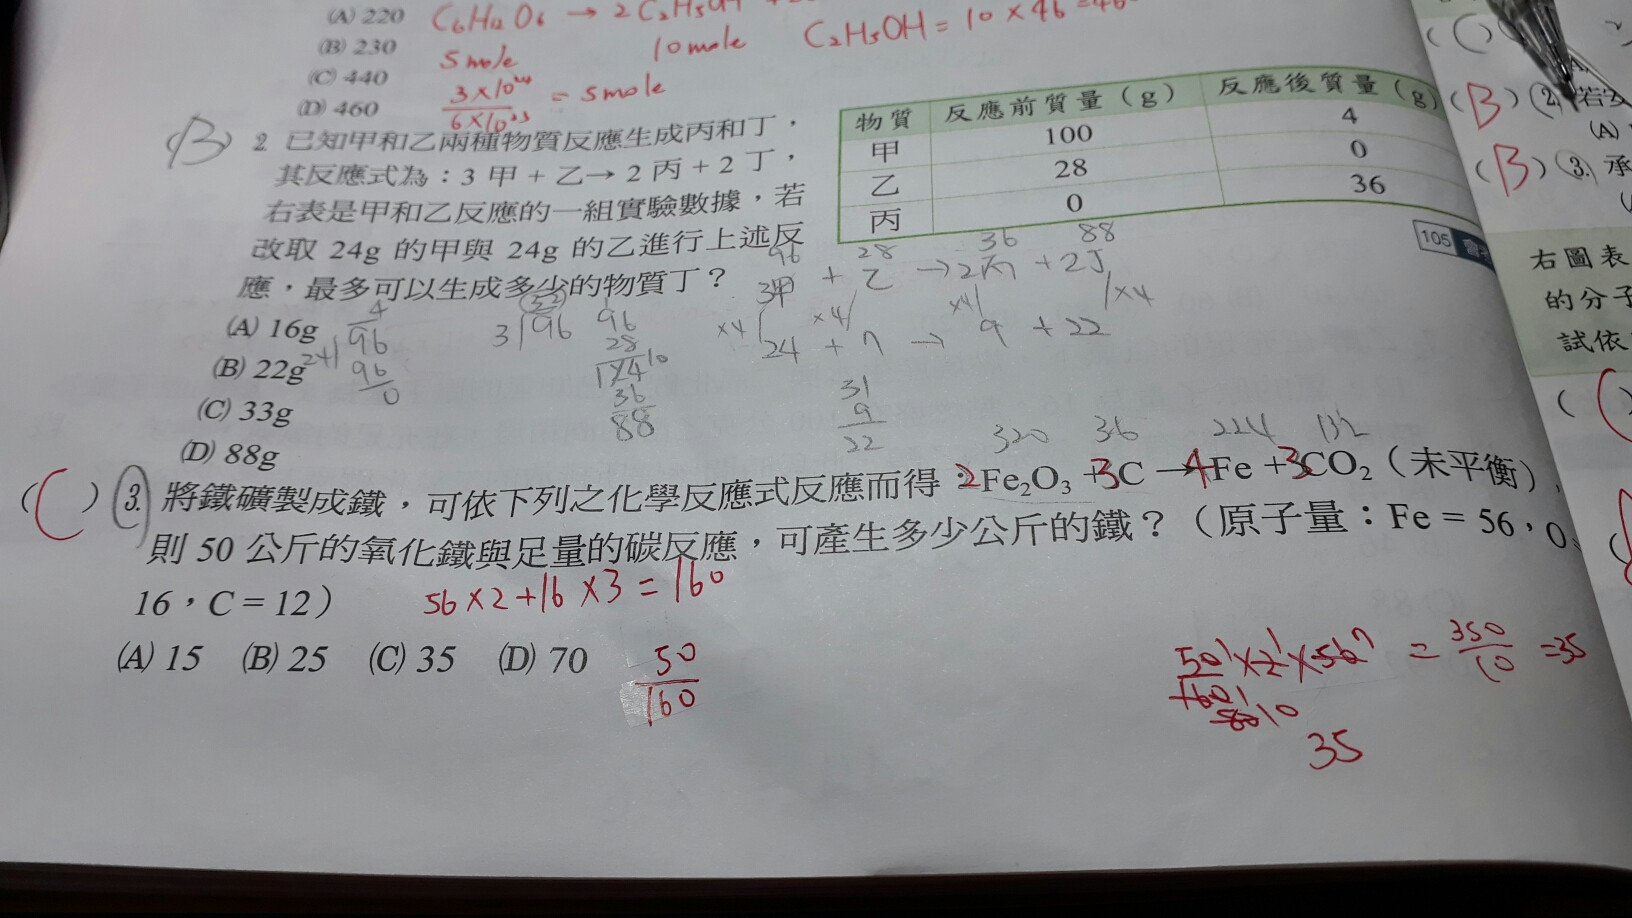 (A) 220
C₆H₁₂O₆ → 2C₂H₅OH +
(B) 230
5 mole 10 mole C₂H₅OH = 10 × 46 =
(C) 440
3×10²⁴/6×10²³ = 5 mole
(D) 460
(B) 2. 已知甲和乙兩種物質反應生成丙和丁，
其反應式為：3 甲 + 乙→ 2 丙 + 2 丁，
右表是甲和乙反應的一組實驗數據，若
改取 24g 的甲與 24g 的乙進行上述反
應，最多可以生成多少的物質丁？
(A) 16g
(B) 22g
(C) 33g
(D) 88g
物質 反應前質量（g） 反應後質量（g）
甲 100 4
乙 28 0
丙 0 36
105
96 28 36 88
3甲 + 乙 → 2丙 + 2丁
×4 ×4 ×4 ×4
24 + 7 → 9 + 22
4
24)96
96
0
3)96
96
28
124
36
88
31
9
22
320 36 224 132
(C) 3. 將鐵礦製成鐵，可依下列之化學反應式反應而得：2Fe₂O₃ + 3C → 4Fe + 3CO₂（未平衡），
則 50 公斤的氧化鐵與足量的碳反應，可產生多少公斤的鐵？（原子量：Fe = 56，O =
16，C = 12）
56×2+16×3=160
(A) 15 (B) 25 (C) 35 (D) 70
50/160
50/160 × 2 × 56 = 350/10 = 35
80 10
35
(B) 2. 若
(A)
(B) 3. 承
右圖表
的分子
試依